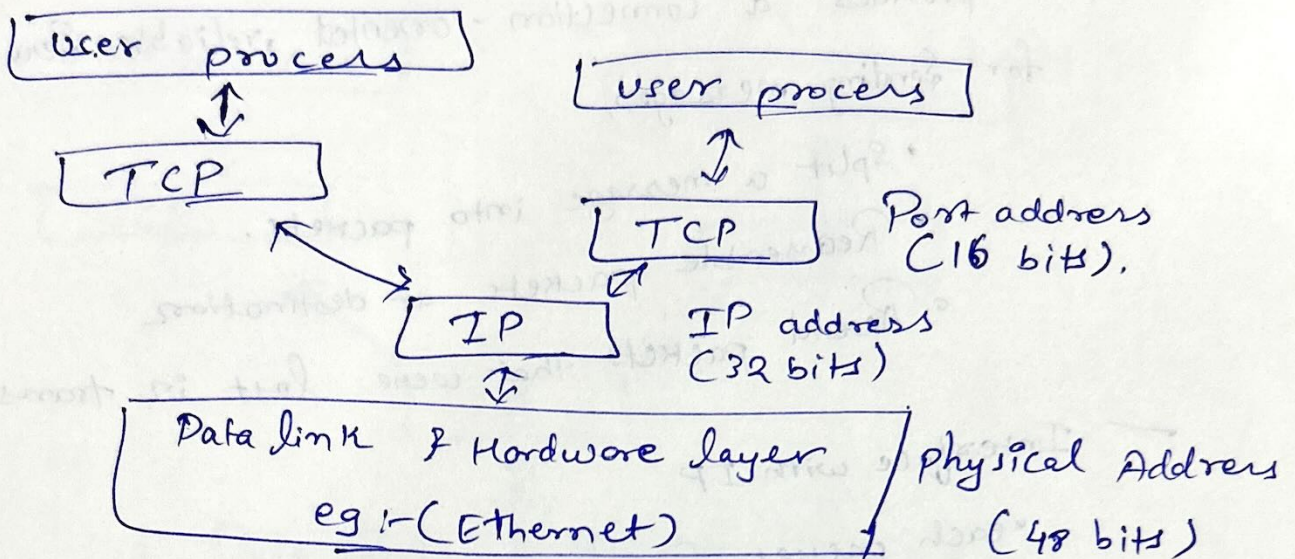 User process
user process
TCP
TCP
Port address
(16 bits).
IP
IP address
(32 bits)
Data link & Hardware layer
eg :- (Ethernet)
physical Address
(48 bits)